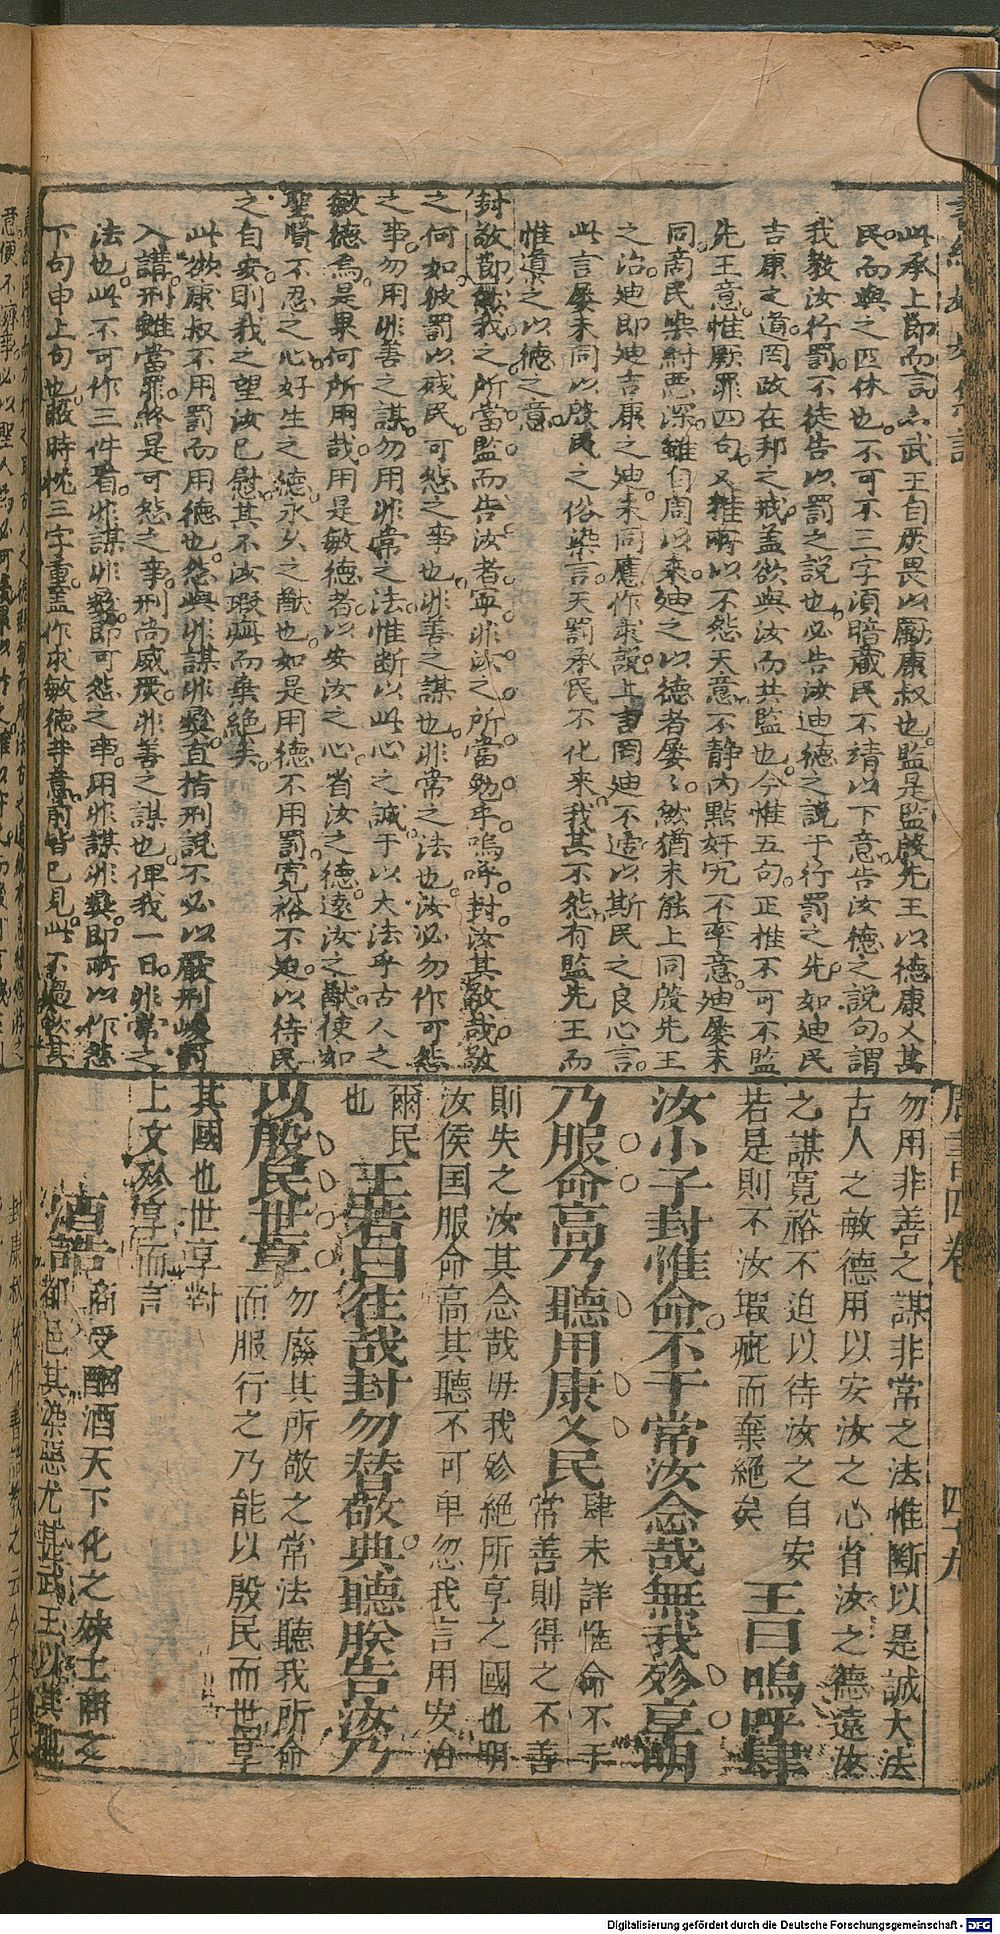 此承上節而言亦武王自嚴畏以勵康叔也監是監殷先王以德康乂其
民而與之匹休也不可不三字須暗藏民不靖以下意告汝德之說句謂
我教汝行罰不徒告以罰之說也必告汝迪德之說于行罰之先如迪民
吉康之道罔政在邦之戒蓋欲與汝而共監也今惟五句正惟不可不監
先王意惟厥罪四句又推所以不怨天意不静內點奸宄不率意迪屢未
同商民染紂惡深雖自周以來迪之以德者屢〻然猶未能上同殷先王
之治迪即迪吉康之迪未同應作求說上言罔迪不適以斯民之良心言
此言屢未同以殷民之俗染言天罰承民不化來我其不怨有監先王而
惟道之以德之意
封敬節然我之所當監而告汝者寧非汝之所當勉乎嗚呼封汝其敬哉敬
之何如彼罰以殘民可怨之事也非善之謀也非常之法也汝必勿作可怨
之事勿用非善之謀勿用非常之法惟斷以此心之誠于以大法乎古人之
敏德焉是果何所用哉用是敏德者以安汝之心省汝之德遠汝之猷使如
聖賢不忍之心好生之德永久之猷也如是用德不用罰寬裕不迫以待民
之自安則我之望汝已慰其不汝瑕疵而棄絕矣
此欲康叔不用罰而用德也怨與非謀非彝直指刑說不必以嚴刑峻罰
入講刑雖當罪終是可怨之事刑尚威嚴非善之謀也俾我一日非常之
法也此不可作三件看非謀非彝即可怨之事用非謀非彝即所以作怨
下句申上句也蔽時忱三字重蓋作求敏德等意前皆已見此不過欲其
周書四卷　四十九
勿用非善之謀非常之法惟斷以是誠大法
古人之敏德用以安汝之心省汝之德遠汝
之謀寬裕不迫以待汝之自安
若是則不汝瑕疵而棄絕矣　王曰嗚呼肆
汝小子封惟命不于常汝念哉無我殄享明
乃服命高乃聽用康乂民　肆未詳惟命不于
常善則得之不善
則失之汝其念哉毋我殄絕所享之國也明
汝侯国服命高其聽不可卑忽我言用安治
爾民
也　王若曰往哉封勿替敬典聽朕告汝乃
以殷民世享　勿廢其所敬之常法聽我所命
而服行之乃能以殷民而世享
其國也世享對
上文殄享而言
酒誥　商受酗酒天下化之妹土商之
都邑其染惡尤甚武王以其地
Digitalisierung gefördert durch die Deutsche Forschungsgemeinschaft - DFG